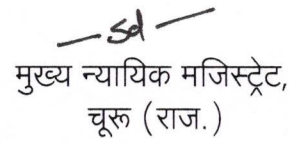 —sd—
मुख्य न्यायिक मजिस्ट्रेट,
चूरू (राज.)